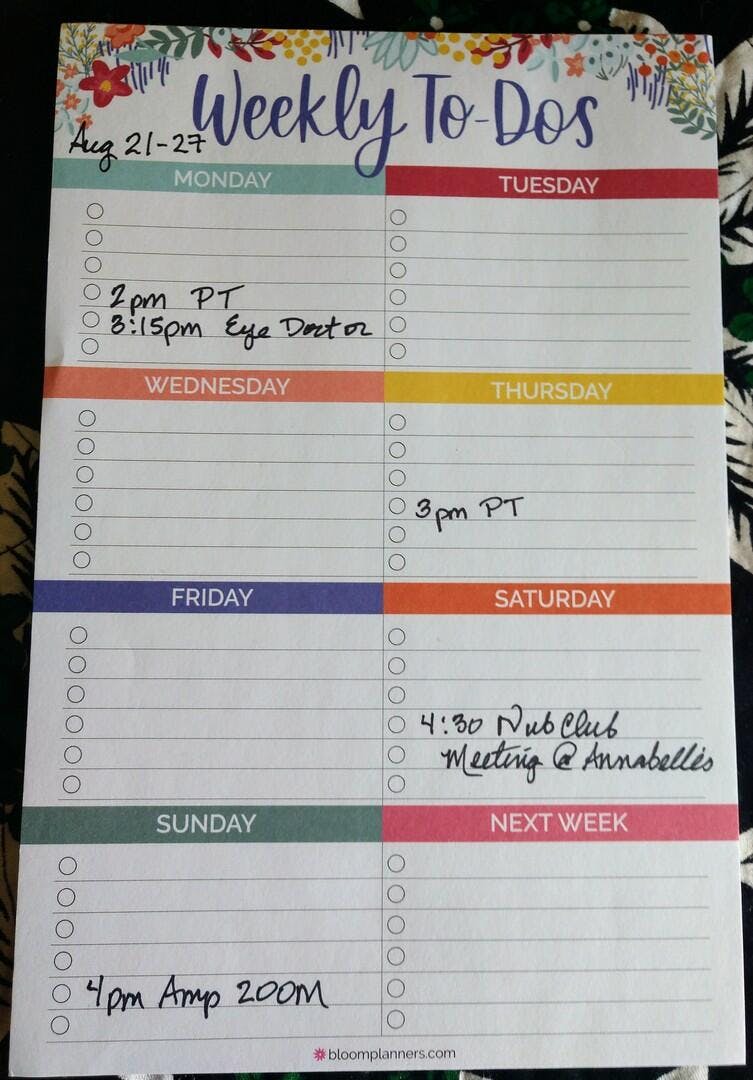 Weekly To-Dos
Aug 21-27
MONDAY
2pm PT
3:15pm Eye Doctor
TUESDAY
WEDNESDAY
THURSDAY
3pm PT
FRIDAY
SATURDAY
4:30 Nub Club
Meeting @ Annabelle's
SUNDAY
4pm Amp ZOOM
NEXT WEEK
bloomplanners.com